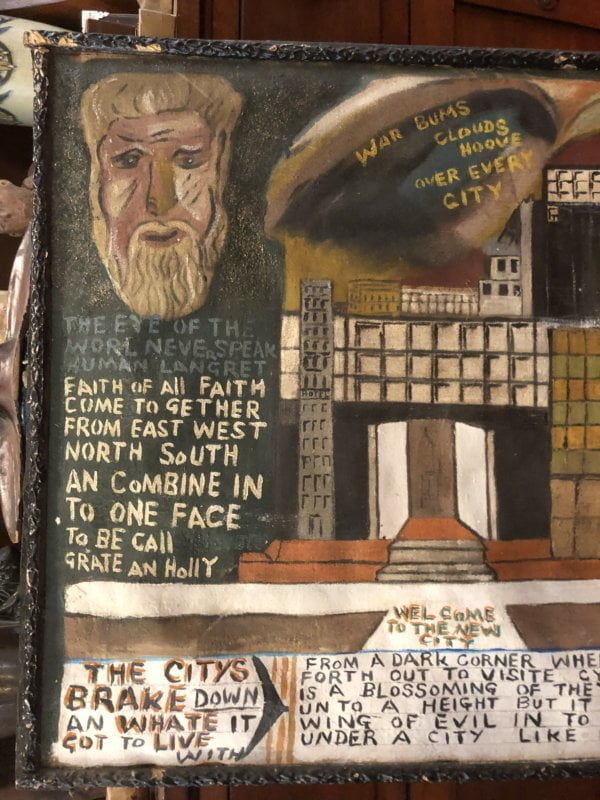 WAR BUMS
CLOUDS
HOOVE
OVER EVERY
CITY
THE EYE OF THE
WORL NEVER SPEAK
HUMAN LANGRET
FAITH OF All FAITH
COME TO GETHER
FROM EAST WEST
NORTH SOUTH
AN COMBINE IN
TO ONE FACE
TO BE CAll
GRATE AN HOllY
HOTEL
WEL COME
TO THE NEW
CITY
THE CITYS
BRAKE DOWN
AN WHATE IT
GOT TO LIVE
WITH
FROM A DARK CORNER WHE
FORTH OUT TO VISITE CY
IS A BLOSSOMING OF THE
UN TO A HEIGHT BUT IT
WING OF EVIL IN TO
UNDER A CITY LIKE